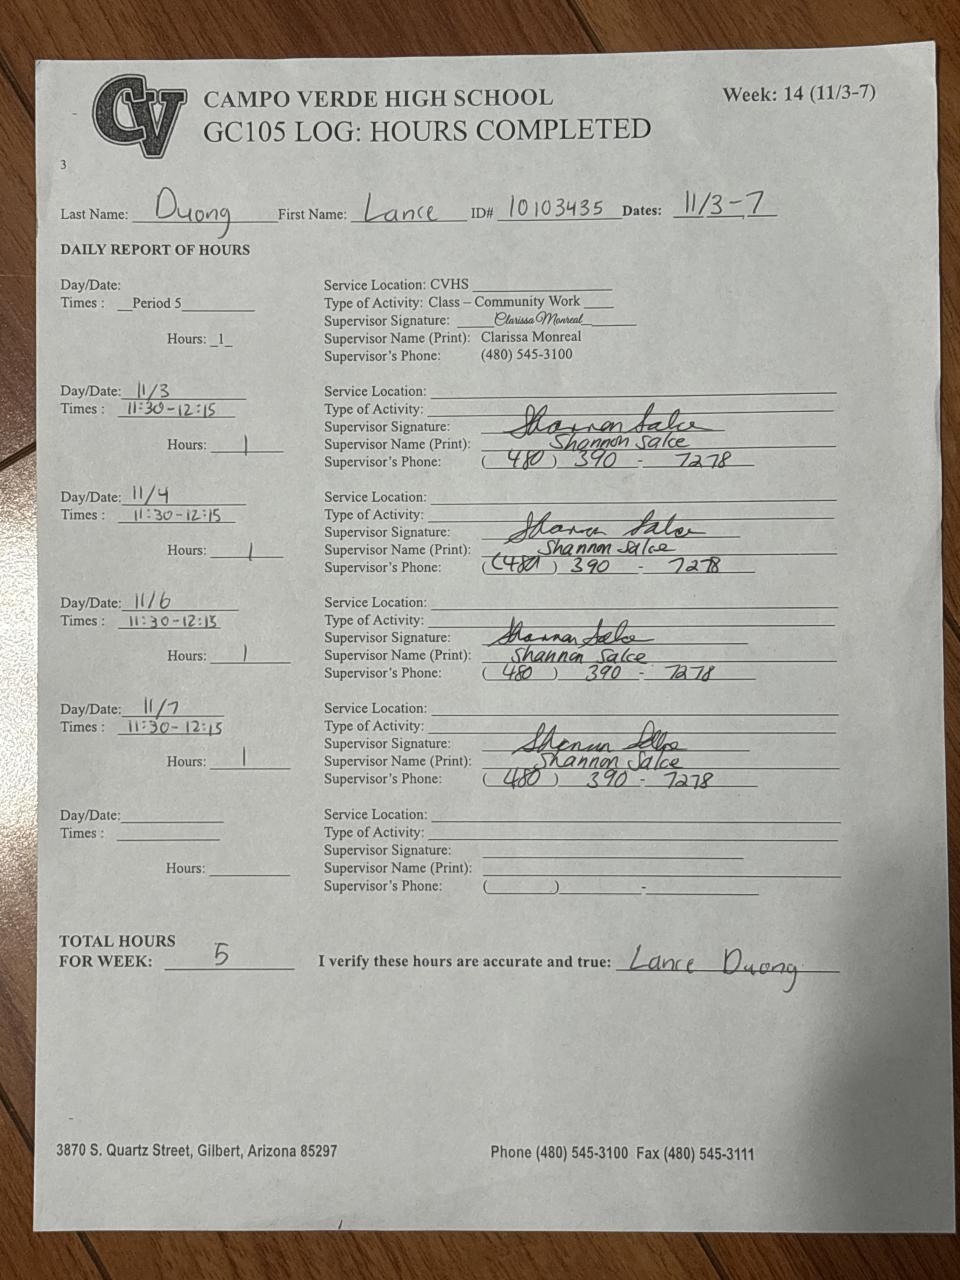 CV
CAMPO VERDE HIGH SCHOOL
Week: 14 (11/3-7)
GC105 LOG: HOURS COMPLETED
3
Last Name: Duong First Name: Lance ID# 10103435 Dates: 11/3-7
DAILY REPORT OF HOURS
Day/Date: Service Location: CVHS
Times : Period 5 Type of Activity: Class – Community Work
Supervisor Signature: Clarissa Monreal
Hours: 1 Supervisor Name (Print): Clarissa Monreal
Supervisor's Phone: (480) 545-3100
Day/Date: 11/3 Service Location:
Times : 11:30-12:15 Type of Activity:
Supervisor Signature: Shannon Salce
Hours: 1 Supervisor Name (Print): Shannon Salce
Supervisor's Phone: (480) 390 - 7278
Day/Date: 11/4 Service Location:
Times : 11:30-12:15 Type of Activity:
Supervisor Signature: Shannon Salce
Hours: 1 Supervisor Name (Print): Shannon Salce
Supervisor's Phone: (480) 390 - 7278
Day/Date: 11/6 Service Location:
Times : 11:30-12:15 Type of Activity:
Supervisor Signature: Shannon Salce
Hours: 1 Supervisor Name (Print): Shannon Salce
Supervisor's Phone: (480) 390 - 7278
Day/Date: 11/7 Service Location:
Times : 11:30-12:15 Type of Activity:
Supervisor Signature: Shannon Salce
Hours: 1 Supervisor Name (Print): Shannon Salce
Supervisor's Phone: (480) 390 - 7278
Day/Date: Service Location:
Times : Type of Activity:
Supervisor Signature:
Hours: Supervisor Name (Print):
Supervisor's Phone: ( ) -
TOTAL HOURS
FOR WEEK: 5 I verify these hours are accurate and true: Lance Duong
3870 S. Quartz Street, Gilbert, Arizona 85297 Phone (480) 545-3100 Fax (480) 545-3111